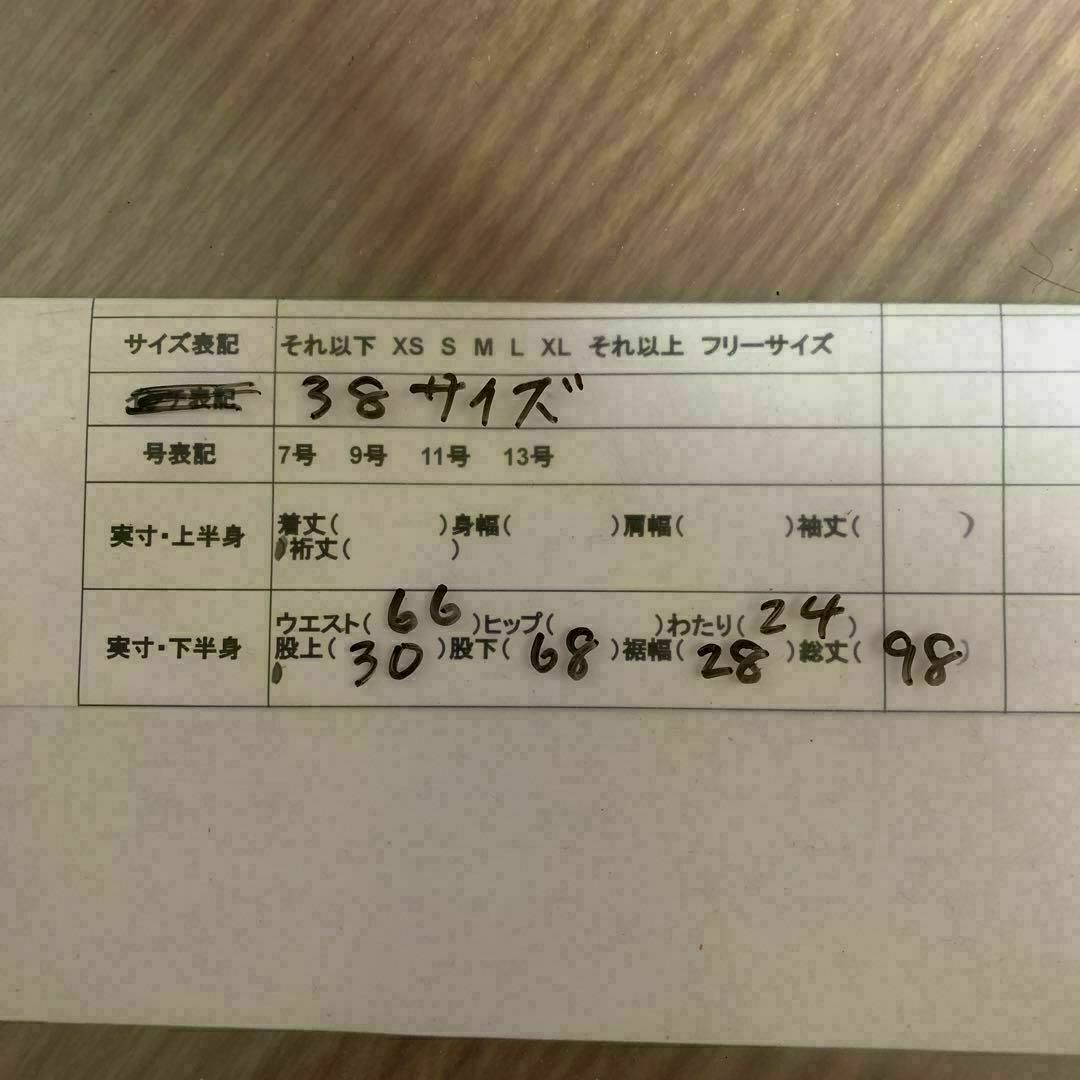 サイズ表記 それ以下 XS S M L XL それ以上 フリーサイズ
表記 38サイズ
号表記 7号 9号 11号 13号
実寸・上半身 着丈( )身幅( )肩幅( )袖丈( )
)裄丈( )
実寸・下半身 ウエスト( 66 )ヒップ( )わたり( 24 )
股上( 30 )股下( 68 )裾幅( 28 )総丈( 98 )
)